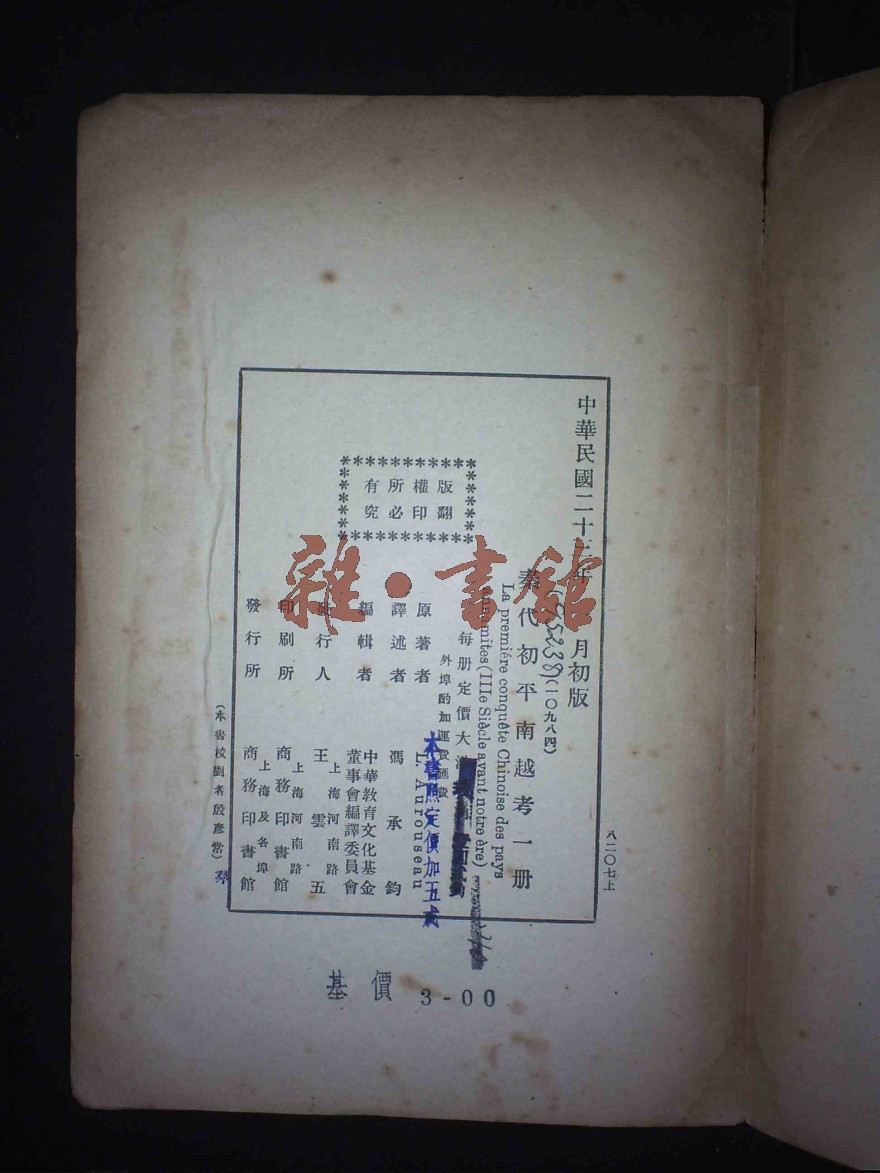 中華民國二十三年 月初版
95238
(一〇九八四)
秦代初平南越考一册
La première conquête Chinoise des pays
annamites (IIIe Siècle avant notre ère)
每册定價大洋
外埠酌加運費匯費
本書照定價加五成
原著者 L. Aurousseau
譯述者 馮承鈞
編輯者 中華教育文化基金
董事會編譯委員會
發行人 王雲五
上海河南路
印刷所 商務印書館
上海河南路
發行所 商務印書館
上海及各埠
版權所有
翻印必究
(本書校對者殷彥常)
琴
八二〇七上
基價 3-00
雜·書館